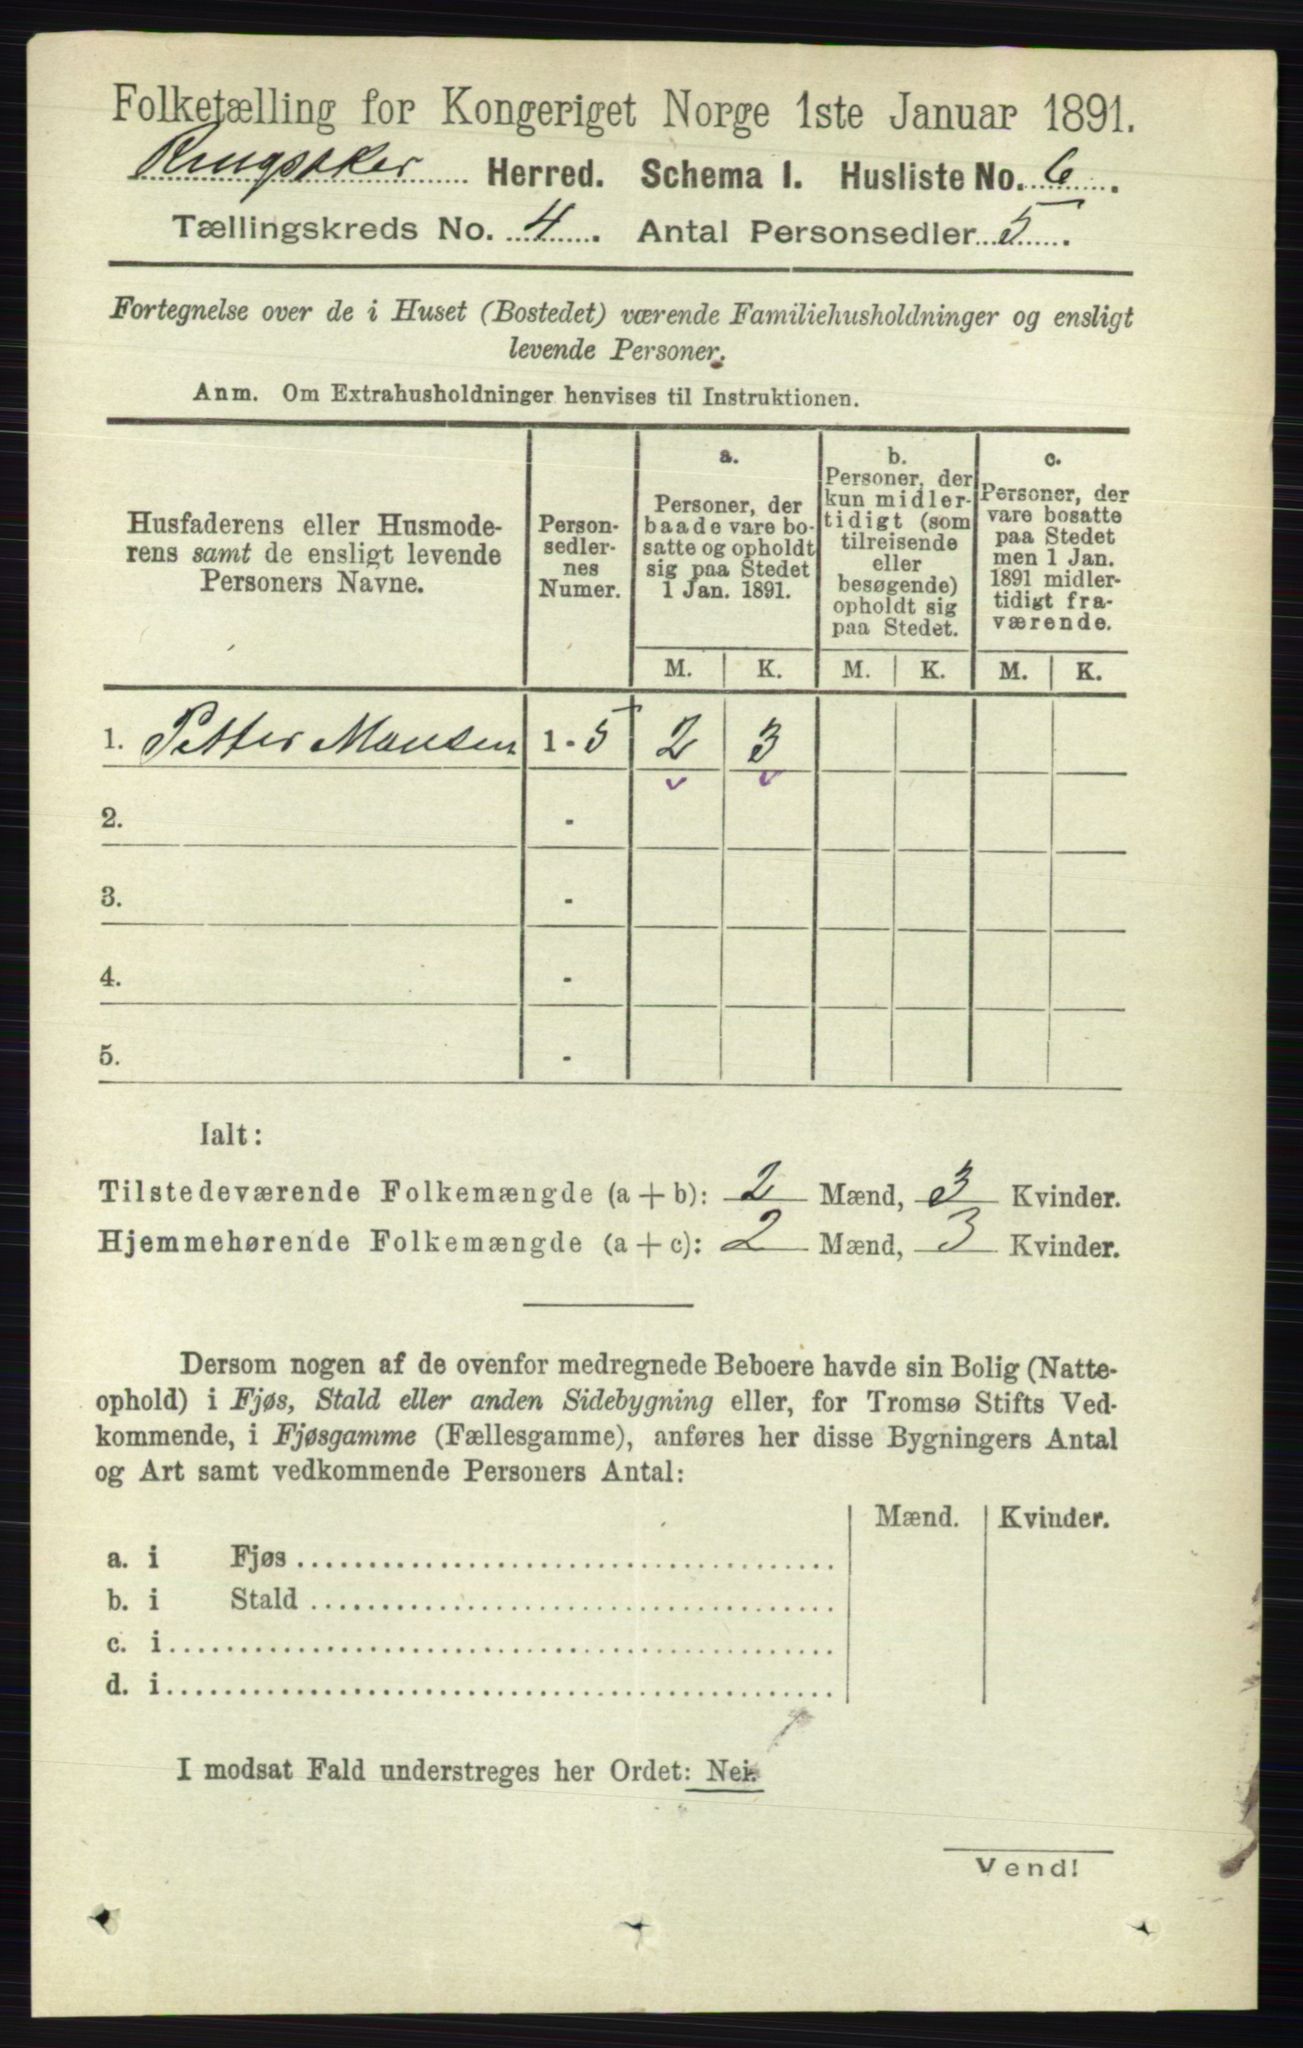 Folketælling for Kongeriget Norge 1ste Januar 1891.
Ringsaker Herred. Schema I. Husliste No. 6.
Tællingskreds No. 4. Antal Personsedler 5.
Fortegnelse over de i Huset (Bostedet) værende Familiehusholdninger og ensligt
levende Personer.
Anm. Om Extrahusholdninger henvises til Instruktionen.
Husfaderens eller Husmode-
rens samt de ensligt levende
Personers Navne.
Person-
sedler-
nes
Numer.
a.
Personer, der
baade vare bo-
satte og opholdt
sig paa Stedet
1 Jan. 1891.
b.
Personer, der
kun midler-
tidigt (som
tilreisende
eller
besøgende)
opholdt sig
paa Stedet.
c.
Personer, der
vare bosatte
paa Stedet
men 1 Jan.
1891 midler-
tidigt fra-
værende.
M. K. M. K. M. K.
1. Petter Mousen 1 - 5 2 3
2. -
3. -
4. -
5. -
Ialt:
Tilstedeværende Folkemængde (a + b): 2 Mænd, 3 Kvinder.
Hjemmehørende Folkemængde (a + c): 2 Mænd, 3 Kvinder.
Dersom nogen af de ovenfor medregnede Beboere havde sin Bolig (Natte-
ophold) i Fjøs, Stald eller anden Sidebygning eller, for Tromsø Stifts Ved-
kommende, i Fjøsgamme (Fællesgamme), anføres her disse Bygningers Antal
og Art samt vedkommende Personers Antal:
Mænd. Kvinder.
a. i Fjøs
b. i Stald
c. i
d. i
I modsat Fald understreges her Ordet: Nei.
Vend!